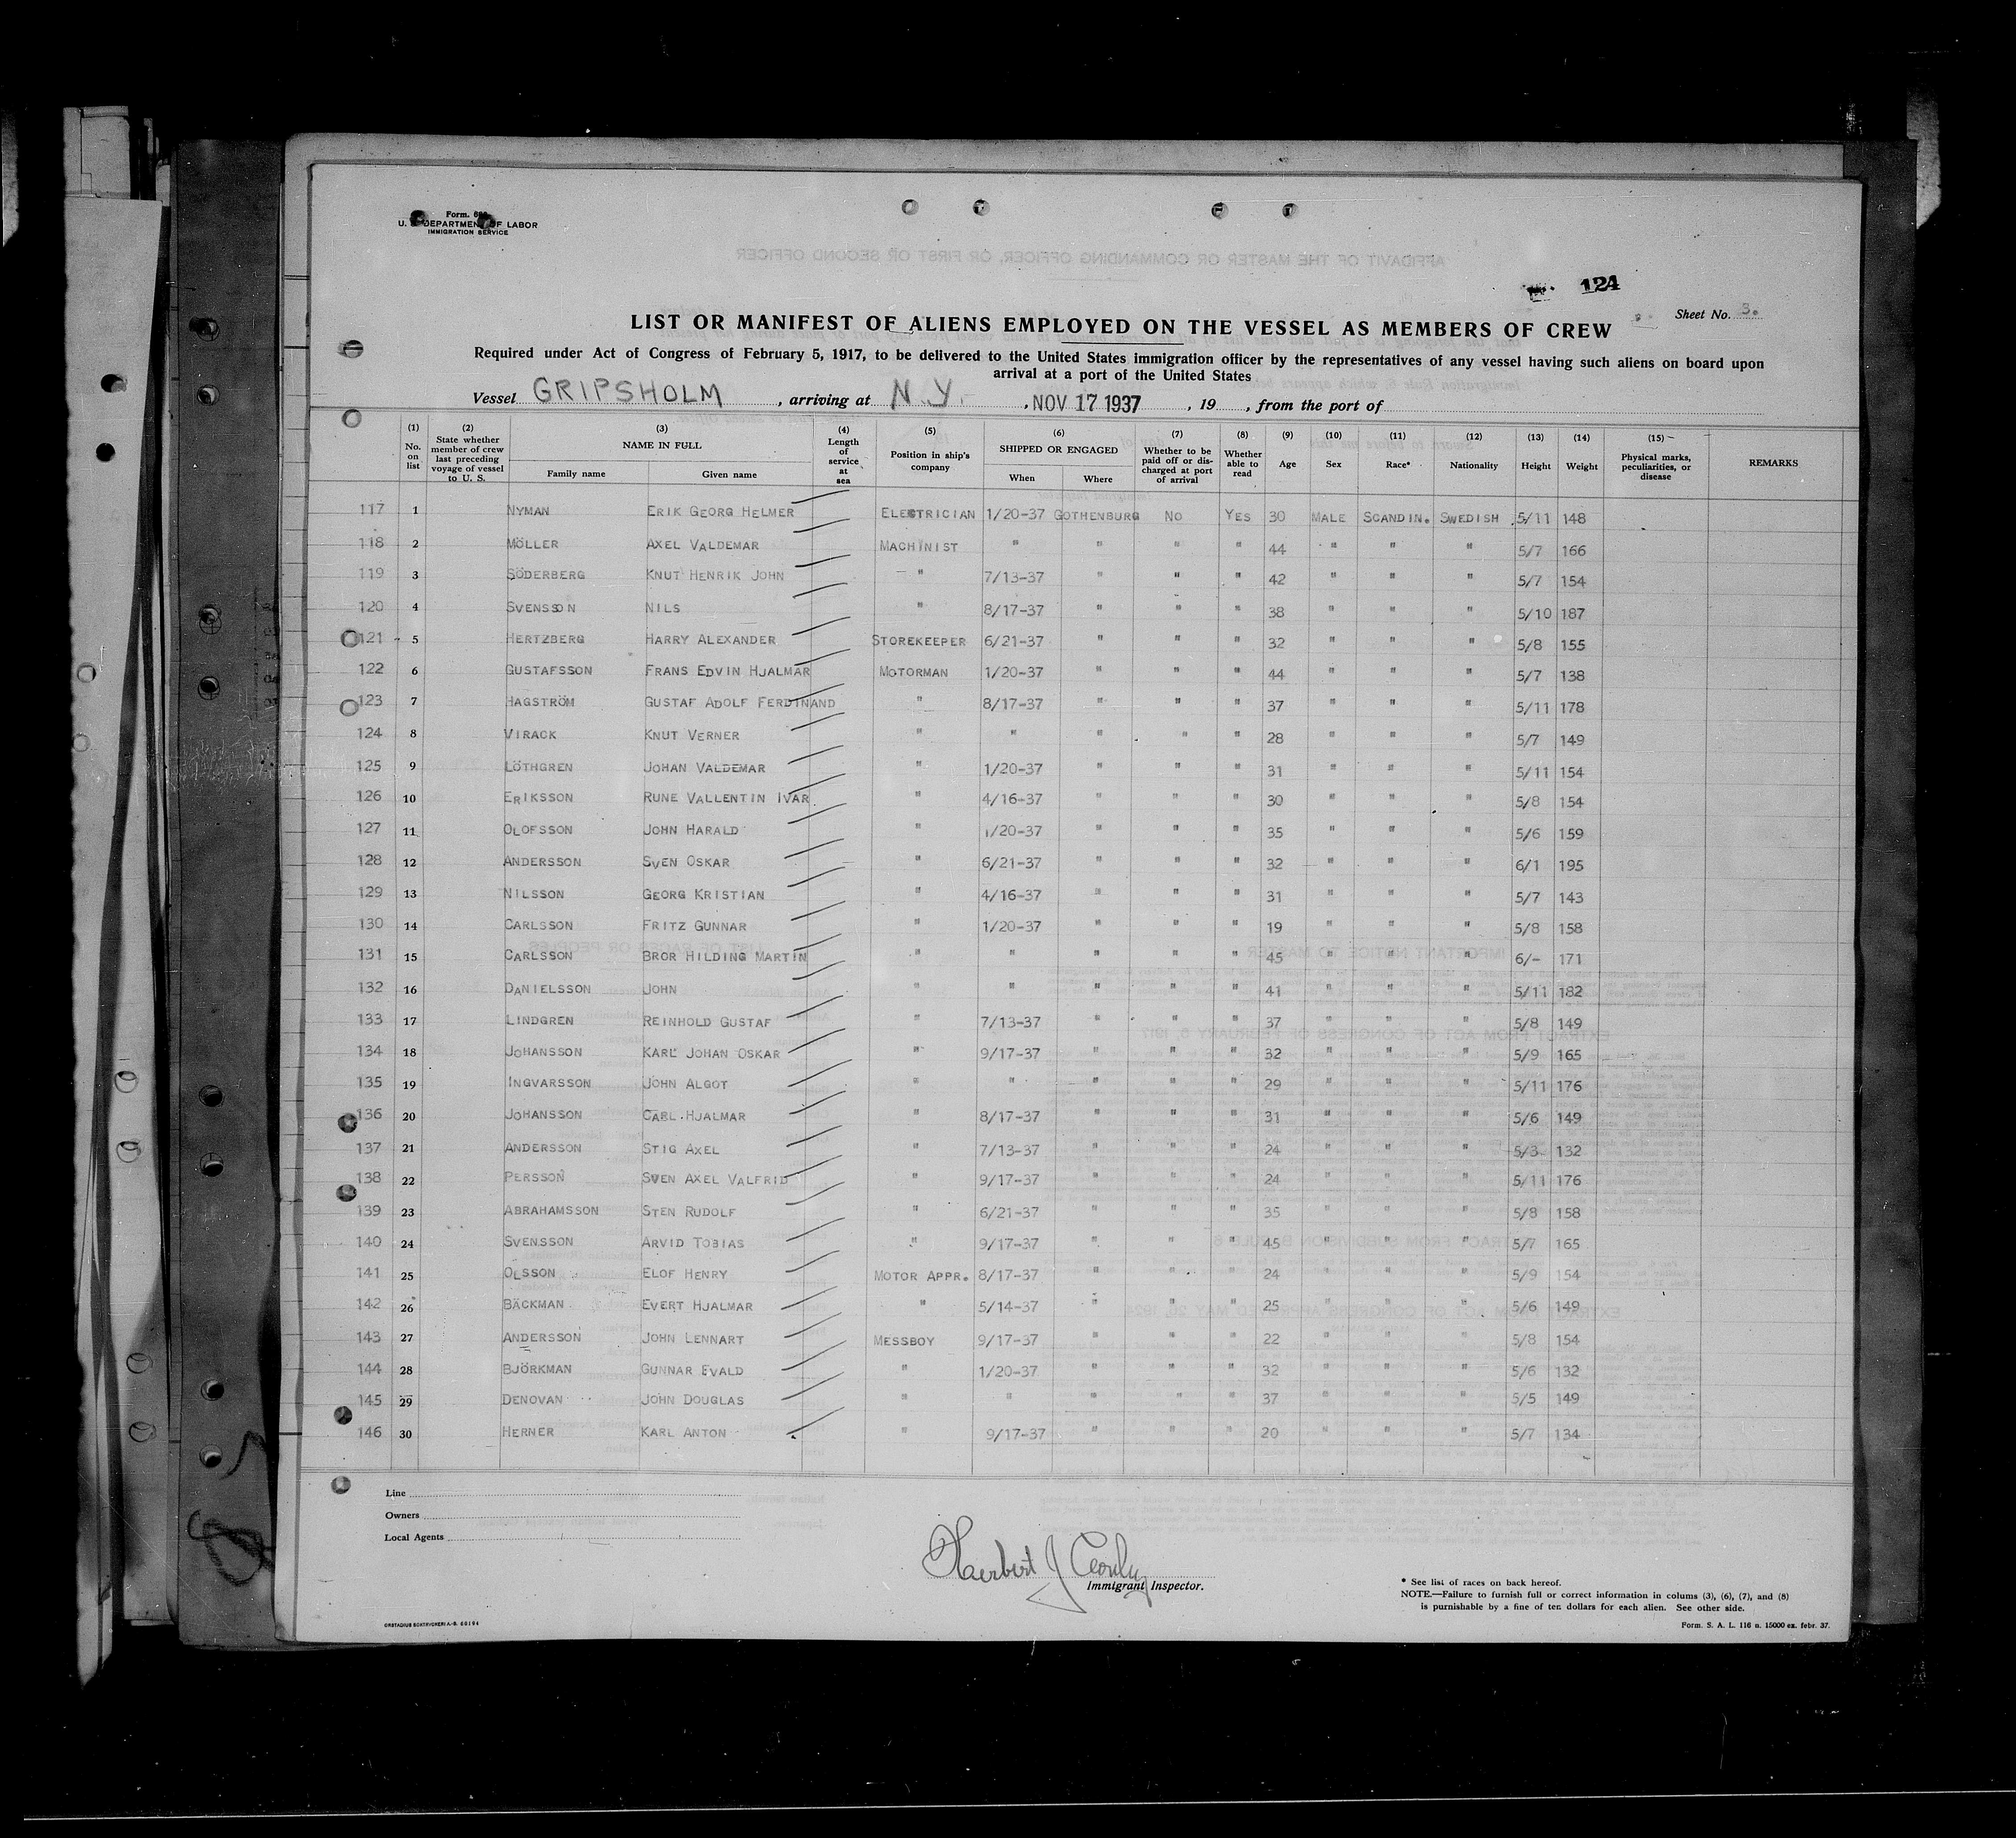 Form. 689
U. S. DEPARTMENT OF LABOR
IMMIGRATION SERVICE
124
Sheet No. 3.
LIST OR MANIFEST OF ALIENS EMPLOYED ON THE VESSEL AS MEMBERS OF CREW
Required under Act of Congress of February 5, 1917, to be delivered to the United States immigration officer by the representatives of any vessel having such aliens on board upon
arrival at a port of the United States
Vessel GRIPSHOLM, arriving at N.Y., NOV 17 1937, 19, from the port of
(1) No. on list (2) State whether member of crew last preceding voyage of vessel to U. S. (3) NAME IN FULL Family name Given name (4) Length of service at sea (5) Position in ship's company (6) SHIPPED OR ENGAGED When Where (7) Whether to be paid off or discharged at port of arrival (8) Whether able to read (9) Age (10) Sex (11) Race* (12) Nationality (13) Height (14) Weight (15) Physical marks, peculiarities, or disease REMARKS
117 1 NYMAN ERIK GEORG HELMER ELECTRICIAN 1/20-37 GOTHENBURG NO YES 30 MALE SCANDIN. SWEDISH 5/11 148
118 2 MÖLLER AXEL VALDEMAR MACHINIST " " " " 44 " " " 5/7 166
119 3 SÖDERBERG KNUT HENRIK JOHN " 7/13-37 " " " 42 " " " 5/7 154
120 4 SVENSSON NILS " 8/17-37 " " " 38 " " " 5/10 187
121 5 HERTZBERG HARRY ALEXANDER STOREKEEPER 6/21-37 " " " 32 " " " 5/8 155
122 6 GUSTAFSSON FRANS EDVIN HJALMAR MOTORMAN 1/20-37 " " " 44 " " " 5/7 138
123 7 HAGSTRÖM GUSTAF ADOLF FERDINAND " 8/17-37 " " " 37 " " " 5/11 178
124 8 VIRACK KNUT VERNER " " " " " 28 " " " 5/7 149
125 9 LÖTHGREN JOHAN VALDEMAR " 1/20-37 " " " 31 " " " 5/11 154
126 10 ERIKSSON RUNE VALLENTIN IVAR " 4/16-37 " " " 30 " " " 5/8 154
127 11 OLOFSSON JOHN HARALD " 1/20-37 " " " 35 " " " 5/6 159
128 12 ANDERSSON SVEN OSKAR " 6/21-37 " " " 32 " " " 6/1 195
129 13 NILSSON GEORG KRISTIAN " 4/16-37 " " " 31 " " " 5/7 143
130 14 CARLSSON FRITZ GUNNAR " 1/20-37 " " " 19 " " " 5/8 158
131 15 CARLSSON BROR HILDING MARTIN " " " " " 45 " " " 6/- 171
132 16 DANIELSSON JOHN " " " " " 41 " " " 5/11 182
133 17 LINDGREN REINHOLD GUSTAF " 7/13-37 " " " 37 " " " 5/8 149
134 18 JOHANSSON KARL JOHAN OSKAR " 9/17-37 " " " 32 " " " 5/9 165
135 19 INGVARSSON JOHN ALGOT " " " " " 29 " " " 5/11 176
136 20 JOHANSSON CARL HJALMAR " 8/17-37 " " " 31 " " " 5/6 149
137 21 ANDERSSON STIG AXEL " 7/13-37 " " " 24 " " " 5/3 132
138 22 PERSSON SVEN AXEL VALFRID " 9/17-37 " " " 24 " " " 5/11 176
139 23 ABRAHAMSSON STEN RUDOLF " 6/21-37 " " " 35 " " " 5/8 158
140 24 SVENSSON ARVID TOBIAS " 9/17-37 " " " 45 " " " 5/7 165
141 25 OLSSON ELOF HENRY MOTOR APPR. 8/17-37 " " " 24 " " " 5/9 154
142 26 BÄCKMAN EVERT HJALMAR " 5/14-37 " " " 25 " " " 5/6 149
143 27 ANDERSSON JOHN LENNART MESSBOY 9/17-37 " " " 22 " " " 5/8 154
144 28 BJÖRKMAN GUNNAR EVALD " 1/20-37 " " " 32 " " " 5/6 132
145 29 DENOVAN JOHN DOUGLAS " " " " " 37 " " " 5/5 149
146 30 HERNER KARL ANTON " 9/17-37 " " " 20 " " " 5/7 134
Line
Owners
Local Agents
Immigrant Inspector.
* See list of races on back hereof.
NOTE.—Failure to furnish full or correct information in colums (3), (6), (7), and (8)
is purnishable by a fine of ten dollars for each alien. See other side.
Form. S. A. L. 116 n. 15000 ex. febr. 37.